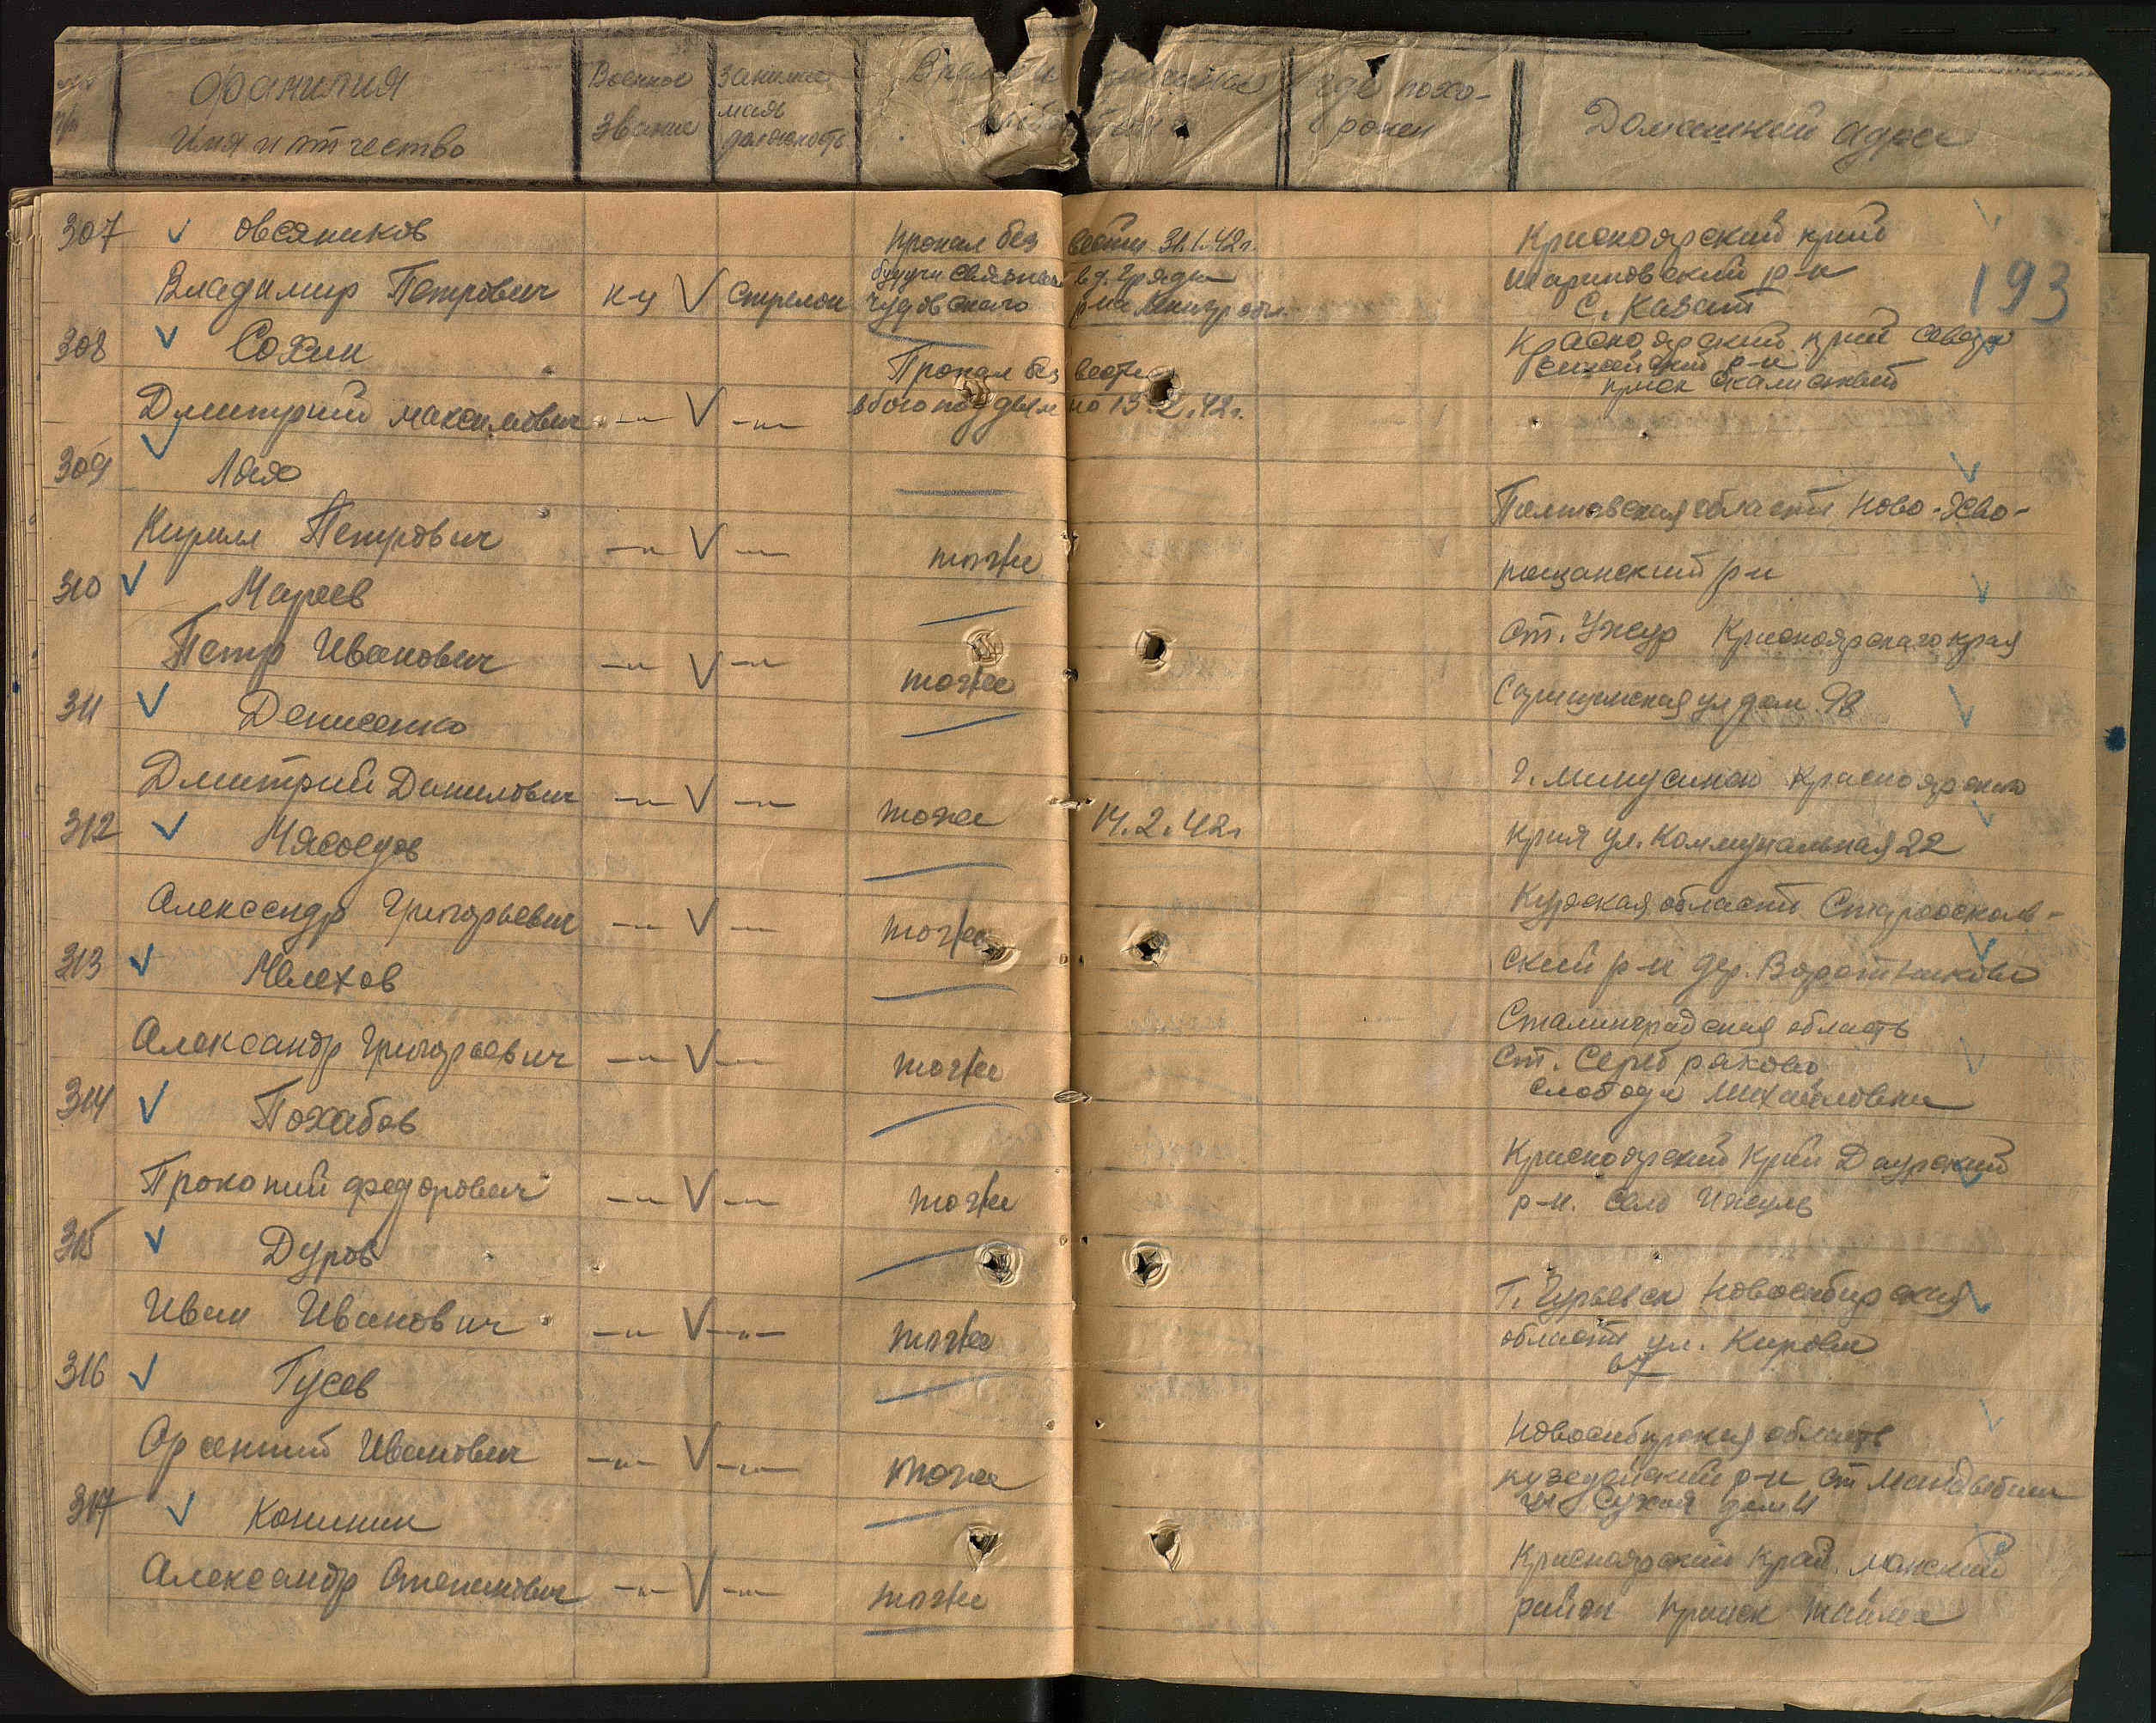 Фамилия
Имя и отчество
Военное
звание
Занима
мая
должность
Время и
где похо-
ронен
Домашний адрес
193
307 Овсяников
Владимир Петрович к-ц стрелок
Пропал без вести 31.1.42г.
будучи связным в д. Гряды
Чудовского р-на Ленингр обл.
Красноярский край
Шариповский р-н
С. Казат
308 Сохин
Дмитрий Максимович -"- -"-
Пропал без вести
в бою под дым но 13.2.42г.
Красноярский край Северо
енисейский р-н
прииск
309
Кирилл Петрович -"- -"- тоже
Полтавская область Ново-Хво-
рощанский р-н
310 Мареев
Петр Иванович -"- -"- тоже
ст. Ужур Красноярского края
ул дом 98
311 Денисенко
Дмитрий Данилович -"- -"- тоже 14.2.42г
г. Минусинск Красноярского
края ул. Коммунальная 22
312 Мясоедов
Александр Григорьевич -"- -"- тоже
Курская область Староосколь-
ский р-н дер. Воротниково
313 Мелехов
Александр Григорьевич -"- -"- тоже
Сталинградская область
ст. Себряково
слобода Михайловка
314 Похабов
Прокопий Федорович -"- -"- тоже
Красноярский край Даурский
р-н. село Ижуль
315 Дуров
Иван Иванович -"- -"- тоже
г. Гурьевск Новосибирская
область ул. Кирова
67
316 Гусев
Арсентий Иванович -"- -"- тоже
Новосибирская область
кузедеевский р-н ст Мандыбаш
ул. Сухая дом 11
317 Конинин
Александр Степанович -"- -"- тоже
Красноярский край. Манский
район прииск Тайма